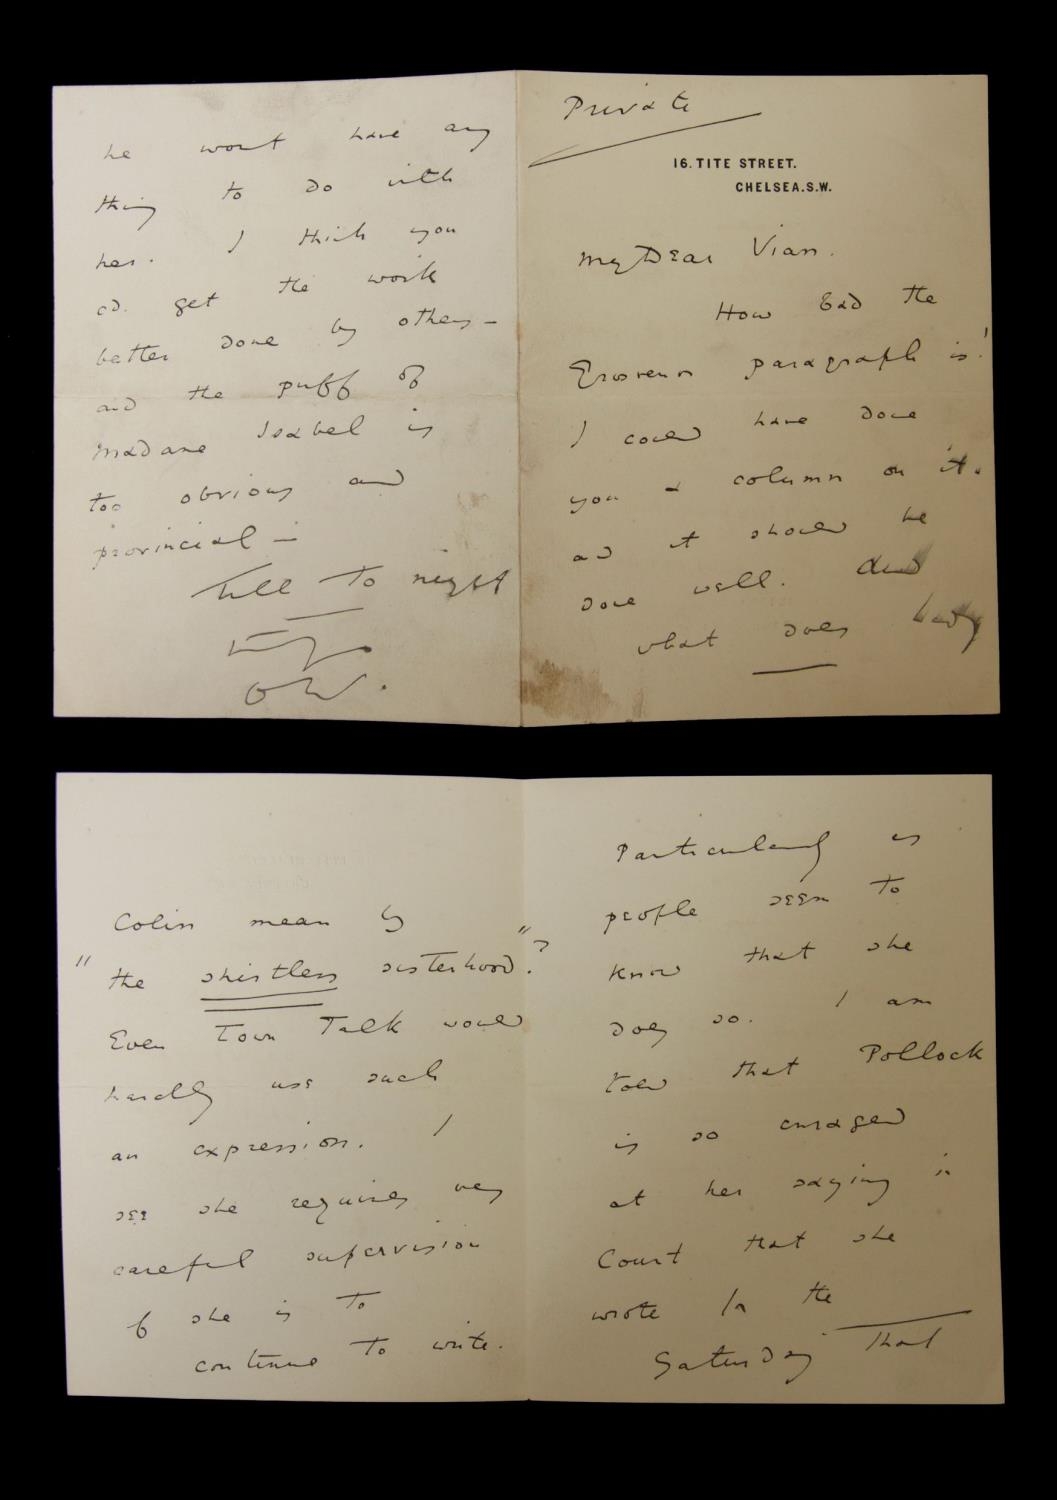 Private
16. TITE STREET.
CHELSEA. S.W.
My Dear Vian.
How bad the
Grosvenor paragraph is!
I could have done
you a column on it.
and it should be
done well. And
what does Lady
Colin mean by
"the shiftless sisterhood"?
Even Town Talk would
hardly use such
an expression. I
see she requires very
careful supervision
if she is to
continue to write.
Particularly as
people seem to
know that she
does so. I am
told that Pollock
is so enraged
at her saying in
Court that she
wrote for the
Saturday that
he wont have any
thing to do with
her. I think you
cd. get the work
better done by others –
and the puff of
Madame Isabel is
too obvious and
provincial –
Till to night
OW.